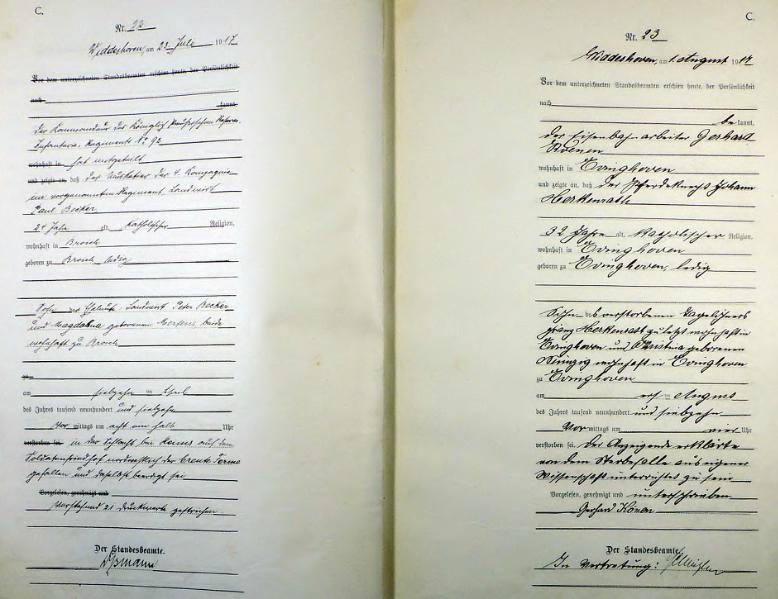 C.
Nr. 22
Widdeshoven, am 21. Juli 1917
Vor dem unterzeichneten Standesbeamten erschien heute, der Persönlichkeit
nach
kannt,
der Kommandeur des Königlich Preußischen Reserve-
Infanterie-Regiments No 92
wohnhaft in hat mitgeteilt
und zeigte an, daß der Musketier der 4. Kompagnie
im vorgenannten Regiment, Landwirt
Paul Becker
24 Jahre alt, katholischer Religion,
wohnhaft in Broich
geboren zu Broich, ledig
Sohn der Eheleute, Landwirt Peter Becker
und Magdalena geborenen beide
wohnhaft zu Broich
zu
am siebzehn ten April
des Jahres tausend neunhundert und siebzehn
Vor mittags um acht ein halb Uhr
verstorben sei in der Schlacht bei Reims auf dem
Soldatenfriedhof nordwestlich der Ferme
gefallen und daselbst beerdigt sei
Vorgelesen, genehmigt und
Vorstehend 21 Druckworte gestrichen
Der Standesbeamte.
C.
Nr. 23
Widdeshoven, am 1. August 1917
Vor dem unterzeichneten Standesbeamten erschien heute, der Persönlichkeit
nach
be kannt,
der Eisenbahnarbeiter Gerhard
Könen
wohnhaft in Evinghoven
und zeigte an, daß der Pferdeknecht Johann
Herkenrath
32 Jahre alt, katholischer Religion,
wohnhaft in Evinghoven
geboren zu Evinghoven, ledig
Sohn des verstorbenen Tagelöhners
Franz Herkenrath zuletzt wohnhaft in
Evinghoven und Christina geborenen
wohnhaft in Evinghoven
zu Evinghoven
am ersten August
des Jahres tausend neunhundert und siebzehn
Vor mittags um vier Uhr
verstorben sei. Der Anzeigende erklärte
von dem Sterbefalle aus eigener
Wissenschaft unterrichtet zu sein
Vorgelesen, genehmigt und unterschrieben
Gerhard Könen
Der Standesbeamte.
In Vertretung: